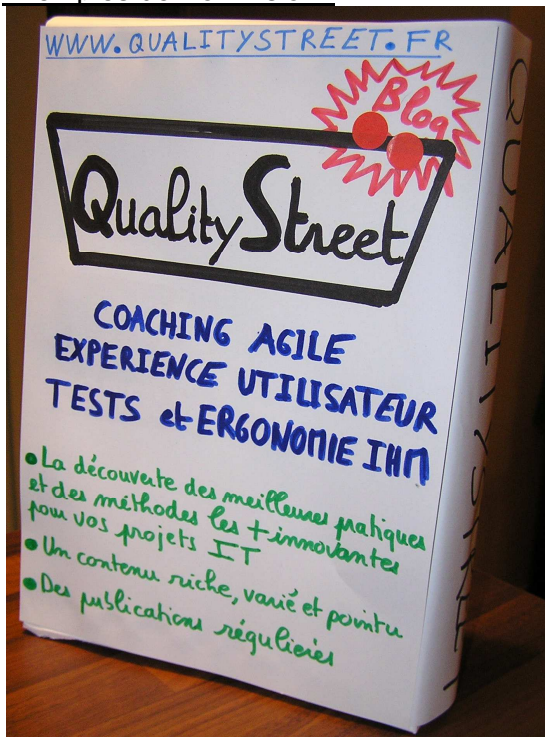 WWW.QUALITYSTREET.FR
Blog
Quality Street
COACHING AGILE
EXPERIENCE UTILISATEUR
TESTS et ERGONOMIE IHM
• La découverte des meilleures pratiques
et des méthodes les + innovantes
pour vos projets ICT
• Un contenu riche, varié et pointu
• Des publications régulières
QUALITYSTREET